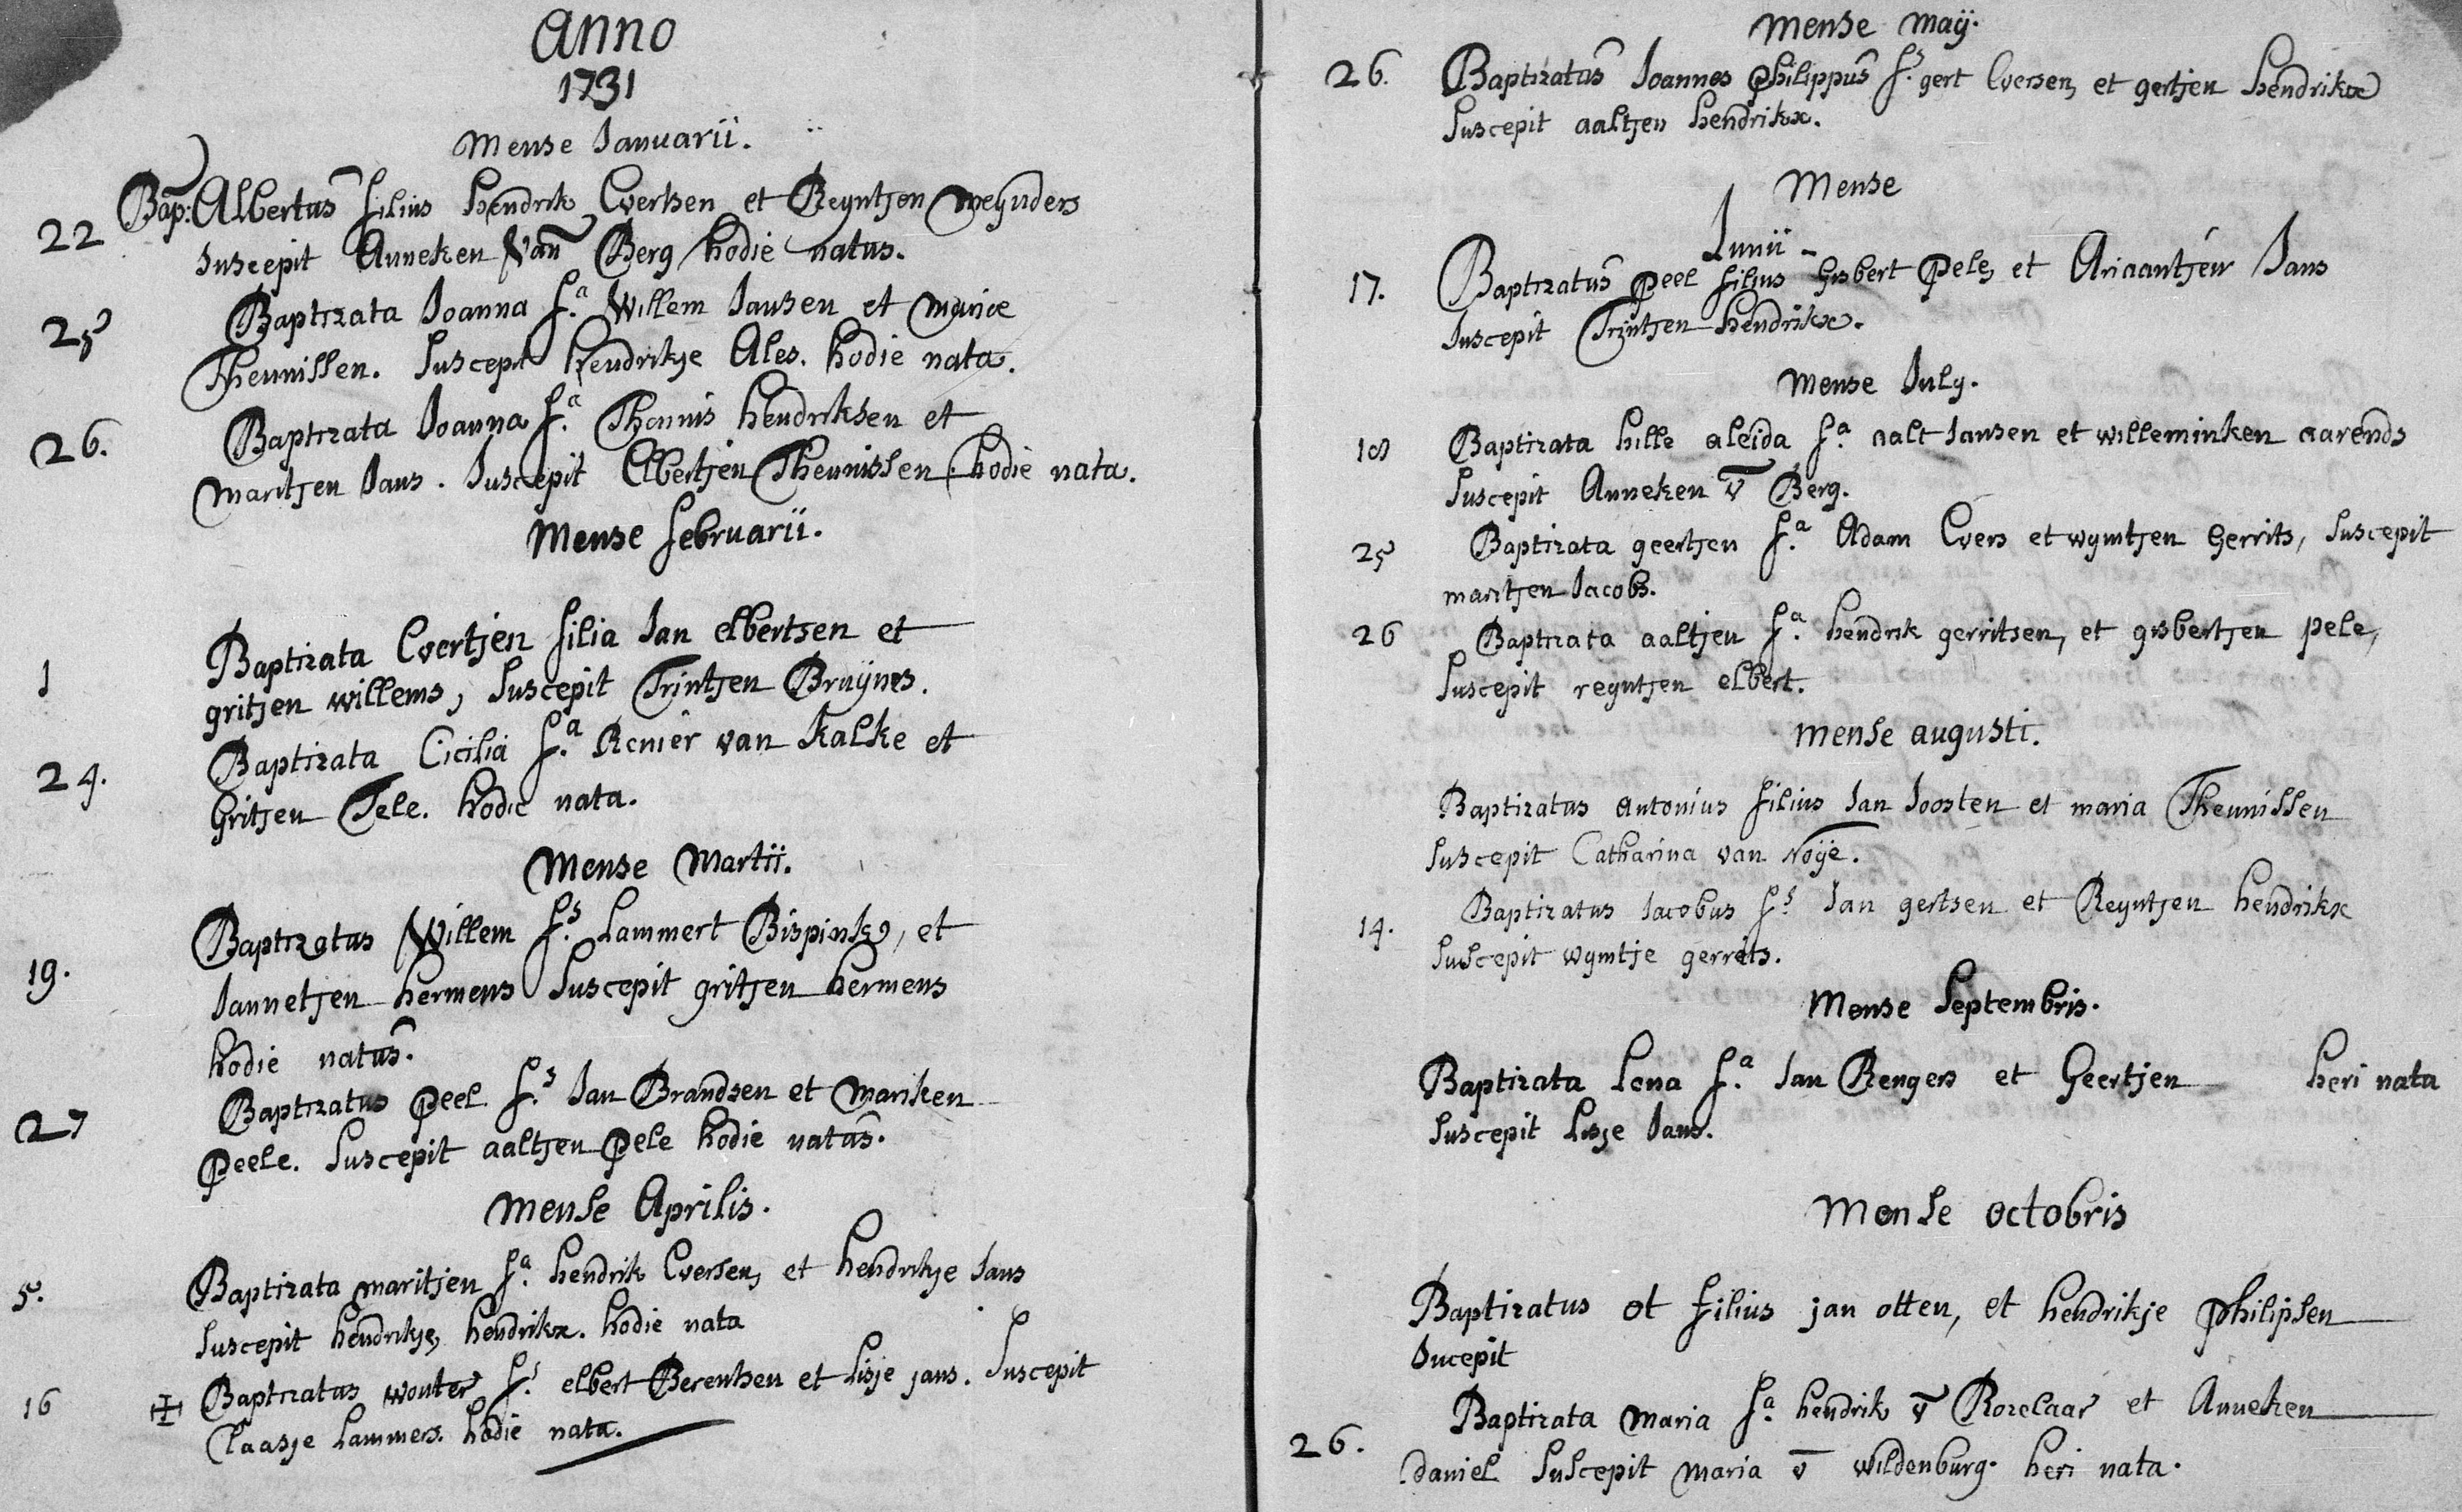 Anno
1731
Mense Ianuarii.
22 Bap: Albertus filius Hendrik Evertsen et Reyntjen Meynders
suscepit Anneken Van Berg hodie natus.
25 Baptizata Ioanna fa. Willem Iansen et Marice
Theunissen. Suscepit hendrikje Ales. hodie nata.
26. Baptizata Ioanna fa. Theunis hendriksen et
maritjen Ians. Suscepit Elbertjen Theunissen. hodie nata.
Mense februarii.
1 Baptizata Evertjen filia Ian elbertsen et
gritjen willems, Suscepit Trintjen Bruÿnes.
24. Baptizata Cicilia fa. Renier van Kalke et
Gritjen Tele. hodie nata.
Mense Martii.
19. Baptizatus Willem fs. Lammert Bispink, et
Iannetjen hermens Suscepit gritjen hermens
hodie natus.
27 Baptizatus Peel fs. Ian Brandsen et Mariken
Peele. Suscepit aaltjen Pele hodie natus.
Mense Aprilis.
5. Baptizata maritjen fa. hendrik Eversen, et hendrikje Ians
Suscepit hendrikje, hendrikx. hodie nata
16 Baptizatus wouter fs. elbert Berentsen et Lisje jans. Suscepit
Claasje Lammers. hodie nata.
Mense maÿ.
26. Baptizatus Ioannes Philippus fs. gert Eversen, et gertjen hendrikx
Suscepit aaltjen hendrikx.
Mense
Iunii
17. Baptizatus Peel filius Gisbert Pele, et Ariaantjen Ians
Suscepit Trintjen hendrikx.
Mense Iuly.
18 Baptizata hille aleida fa. aalt Iansen et willeminken aarends
Suscepit Anneken v̄ Berg.
25 Baptizata geertjen fa. Adam Evers et wymtjen Gerrits, Suscepit
maritjen Iacobs.
26 Baptizata aaltjen fa. hendrik gerritsen, et gisbertjen pele,
Suscepit reyntjen elbert.
Mense augusti.
Baptizatus antonius filius Ian Ioosten et maria Theunissen
Suscepit Catharina van Noije.
14. Baptizatus Iacobus fs. Ian gertsen et Reyntjen hendrikx
Suscepit wymtje gerrits.
Mense Septembris.
Baptizata Lena fa. Ian Rengers et Geertjen heri nata
Suscepit Lisje Ians.
Mense octobris
Baptizatus ot filius jan otten, et hendrikje Philipsen
Sucepit
26. Baptizata Maria fa. hendrik v̄ Rozelaar et Anneken
daniel Suscepit Maria v̄ wildenburg. heri nata.